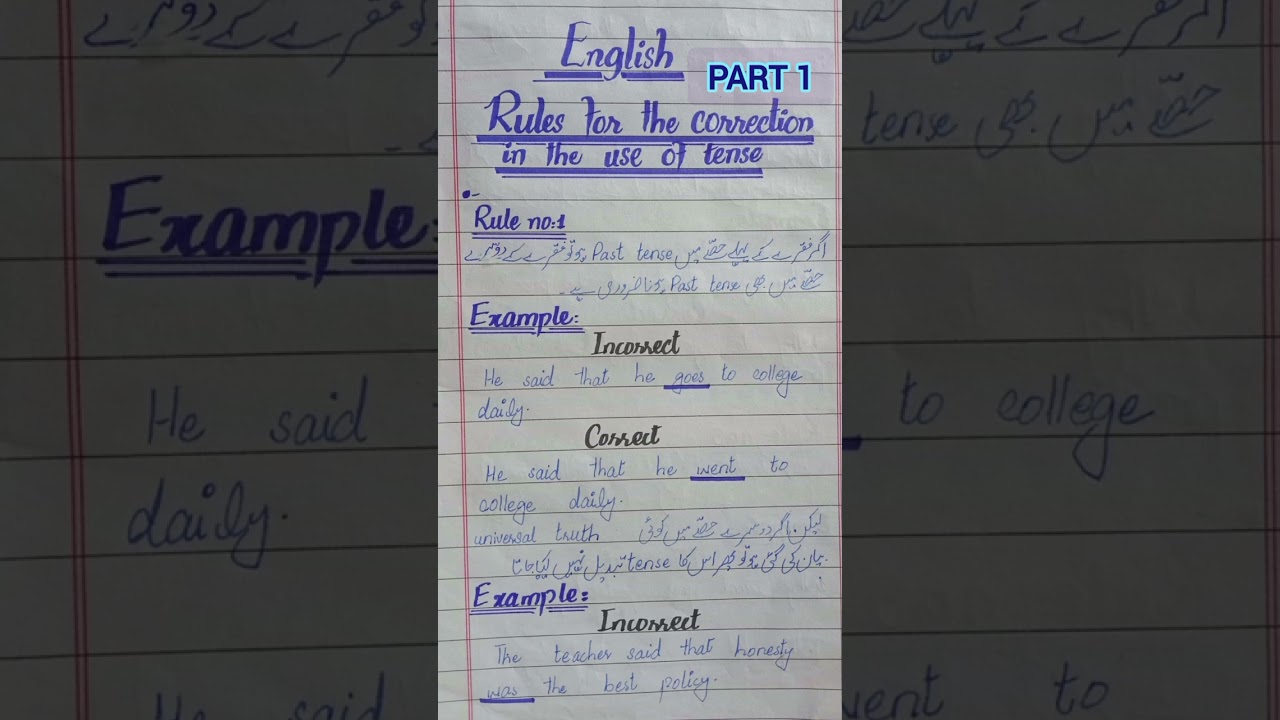 English
PART 1
Rules for the correction
in the use of tense
Rule no:1
اگر فقرے کے پہلے حصّے میں Past tense ہو تو فقرے کے دوسرے
حصّے میں بھی Past tense ہونا ضروری ہے۔
Example:
Incorrect
He said that he goes to college
daily.
Correct
He said that he went to
college daily.
لیکن اگر دوسرے حصّے میں کوئی universal truth
بیان کی گئی ہو تو پھر اس کا tense تبدیل نہیں کیا جاتا
Example:
Incorrect
The teacher said that honesty
was the best policy.